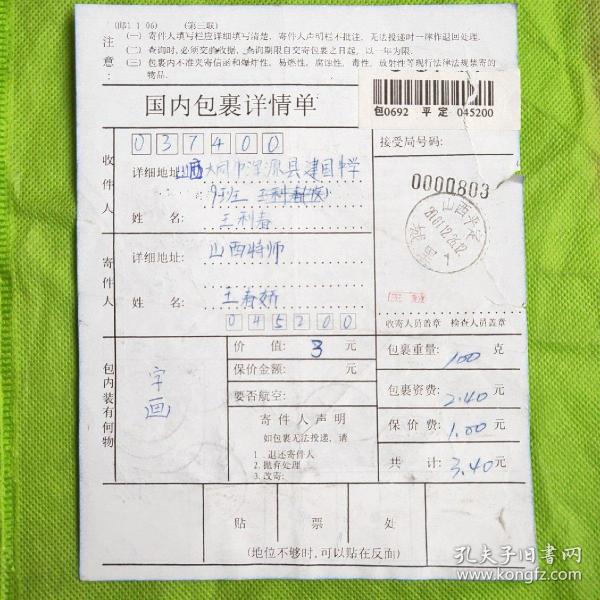 (邮1 1 06) (第三联)
注意:
(一) 寄件人填写栏应详细填写清楚,寄件人声明栏不批注,无法投递时一律作退回处理。
(二) 查询时,必须交验收据,查询期限自交寄包裹之日起,以一年为限。
(三) 包裹内不准夹寄信函和爆炸性,易燃性,腐蚀性,毒性,放射性等现行法律法规禁寄的
物品。
包0692 平定 045200
国内包裹详情单
收件人
037400
接受局号码:
详细地址:山西大同市浑源县建国中学
姓名:王利春
0000803
山西平定
寄件人
详细地址:山西特师
姓名:王春娇
045200
收寄人员盖章 检查人员盖章
包内装有何物
字画
价值:3元
保价金额:元
要否航空:
寄件人声明
如包裹无法投递,请
1.退还寄件人
2.抛弃处理
3.改寄:
包裹重量:100克
包裹资费:2.40元
保价费:1.00元
共计:3.40元
贴票处
(地位不够时,可以贴在反面)
孔夫子旧书网
www.kongfz.com